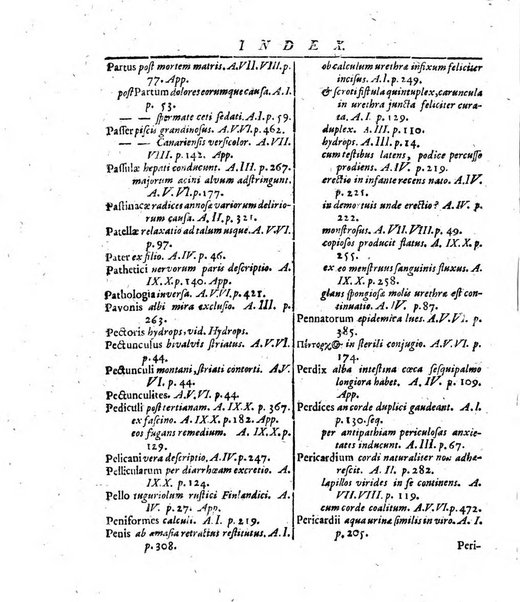 INDEX.
Partus post mortem matris. A. VII. VIII. p.
77. App.
post Partum dolores eorumque causa. A. I.
p. 53.
— — spermate ceti sedati. A. I. p. 59.
Passer piscis grandinosus. A. V. VI. p. 462.
— — Canariensis versicolor. A. VII.
VIII. p. 142. App.
Passulæ hepati conducunt. A. III. p. 267.
majorum acini alvum adstringunt.
A. V. VI. p. 177.
Pastinacæ radices annosæ variorum delirio-
rum causa. A. II. p. 321.
Patellæ relaxatio ad talum usque. A. V. VI.
p. 97.
Pater ex filio. A. IV. p. 46.
Pathetici nervorum paris descriptio. A.
IX. X. p. 207. App.
Pathologia inversa. A. V. VI. p. 421.
Pavonis albi mira exclusio. A. III. p.
263.
Pectoris hydrops, vid. Hydrops.
Pectunculus bivalvis striatus. A. V. VI.
p. 44.
Pectunculi montani, striati contorti. A. V.
VI. p. 44.
Pectunculites. A. V. VI. p. 44.
Pediculi post tertianam. A. IX. X. p. 367.
ex fascino. A. IX. X. p. 182. App.
eos fugans remedium. A. IX. X. p.
93.
Pelicani vera descriptio. A. IV. p. 247.
Pellicularum per diarrhœam excretio. A.
IX. X. p. 124.
Pello tuguriolum rustici Finlandici. A.
IV. p. 27. App.
Peniformes calculi. A. I. p. 219.
Penis ab amasia retratius restitutus. A. I.
p. 308.
ob calculum urethræ infixum feliciter
incisus. A. I. p. 249.
& scroti fistula quintuplex, caruncula
in urethra juncta feliciter cura-
ta. A. I. p. 129.
duplex. A. III. p. 110.
hydrops. A. III. p. 14.
cum testibus latens, podice percusso
prodiens. A. IV. p. 219.
erectio in infante recens nato. A. IV.
p. 221.
in demortuis unde erectio? A. IV. p.
222.
monstrosus. A. VII. VIII. p. 49.
copiosos producit flatus. A. IX. X. p.
255.
ex eo menstruus sanguinis fluxus. A.
IX. X. p. 258.
glans spongiosa molis urethræ est con-
tinuatio. A. IV. p. 87.
Pennatorum epidemica lues. A. V. VI. p.
385.
in sterili conjugio. A. V. VI. p.
174.
Perdix alba intestina cœca sesquipalmo
longiora habet. A. IV. p. 109.
App.
Perdices ancorum duplici gaudeant. A. I.
p. 130. seq.
per antipathiam periculosas anxie-
tates inducunt. A. III. p. 67.
Pericardium cordi naturaliter non adhæ-
rescit. A. II. p. 282.
lapillos virides in se continens. A.
VII. VIII. p. 119.
cum corde coalitum. A. V. VI. p. 472.
Pericardii aqua urinæ similis in viro. A. I.
p. 205.
Peri-